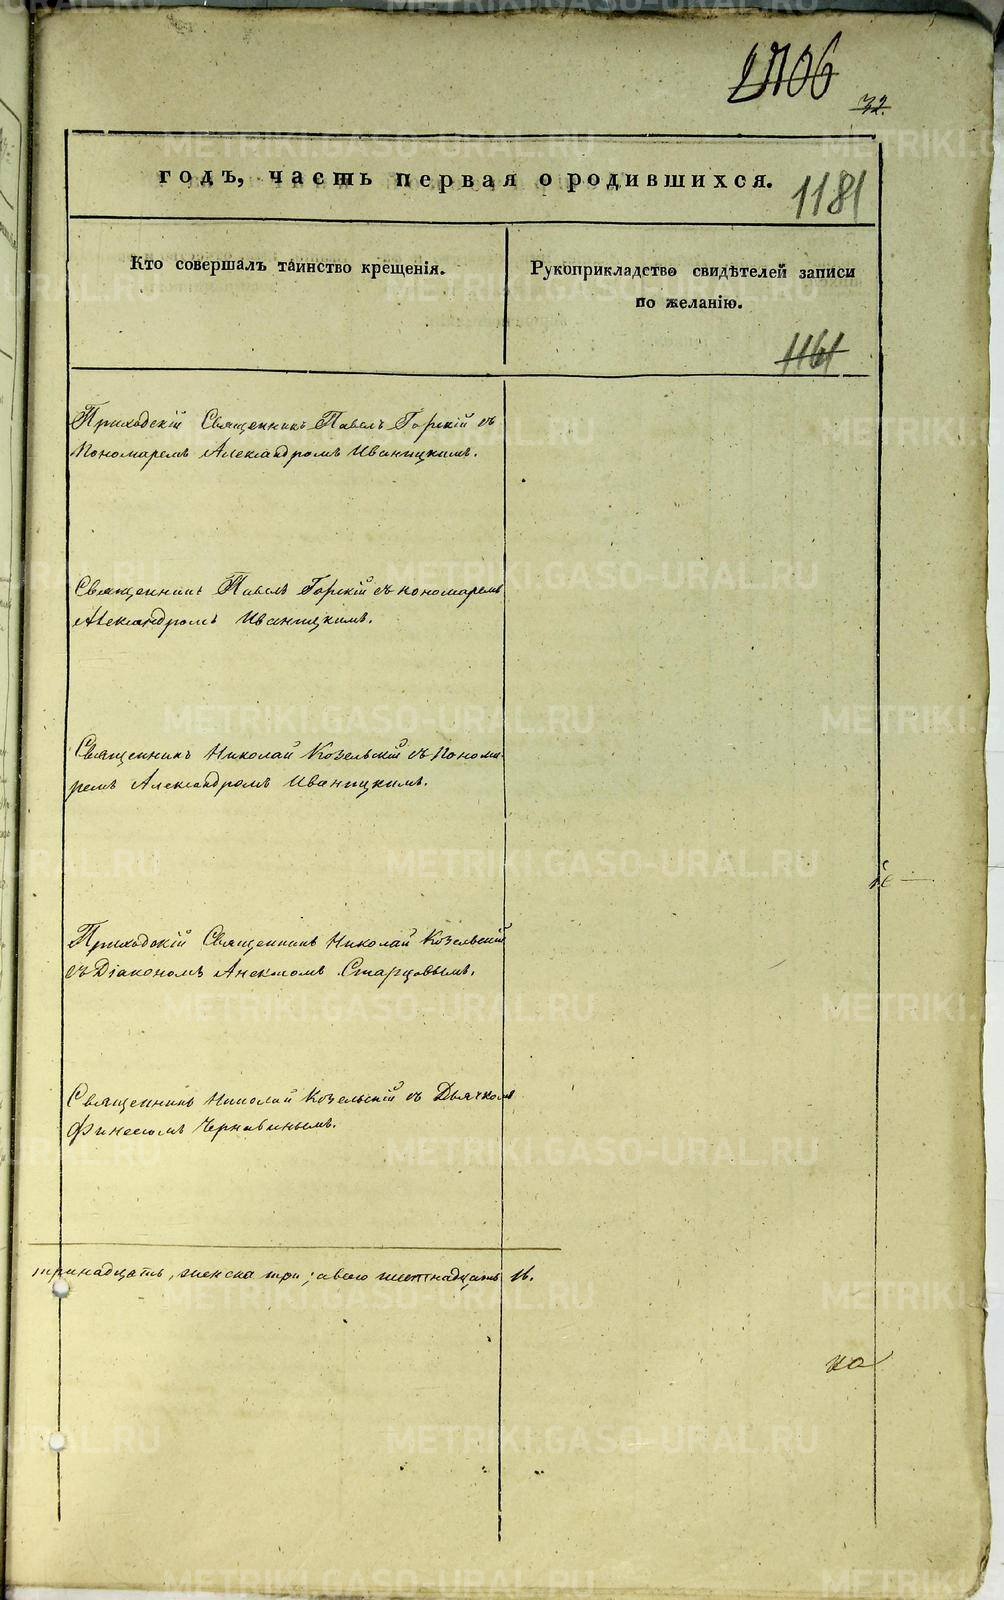 32.
годъ, часть первая о родившихся.
1181
Кто совершалъ таинство крещенія.
Рукоприкладство свидѣтелей записи
по желанію.
1161
Приходскій Священникъ Павелъ Горскій съ
Пономаремъ Александромъ Иваницкимъ.
Священникъ Павелъ Горскій съ пономаремъ
Александромъ Иваницкимъ.
Священникъ Николай Козельскій съ Понома-
ремъ Александромъ Иваницкимъ.
Приходскій Священникъ Николай Козельскій
съ Діакономъ Старцовымъ.
Священникъ Николай Козельскій съ Дьячкомъ
Финеесомъ Чернавинымъ.
тринадцать, женска три; а всего шестнадцать 16.
METRIKI.GASO-URAL.RU